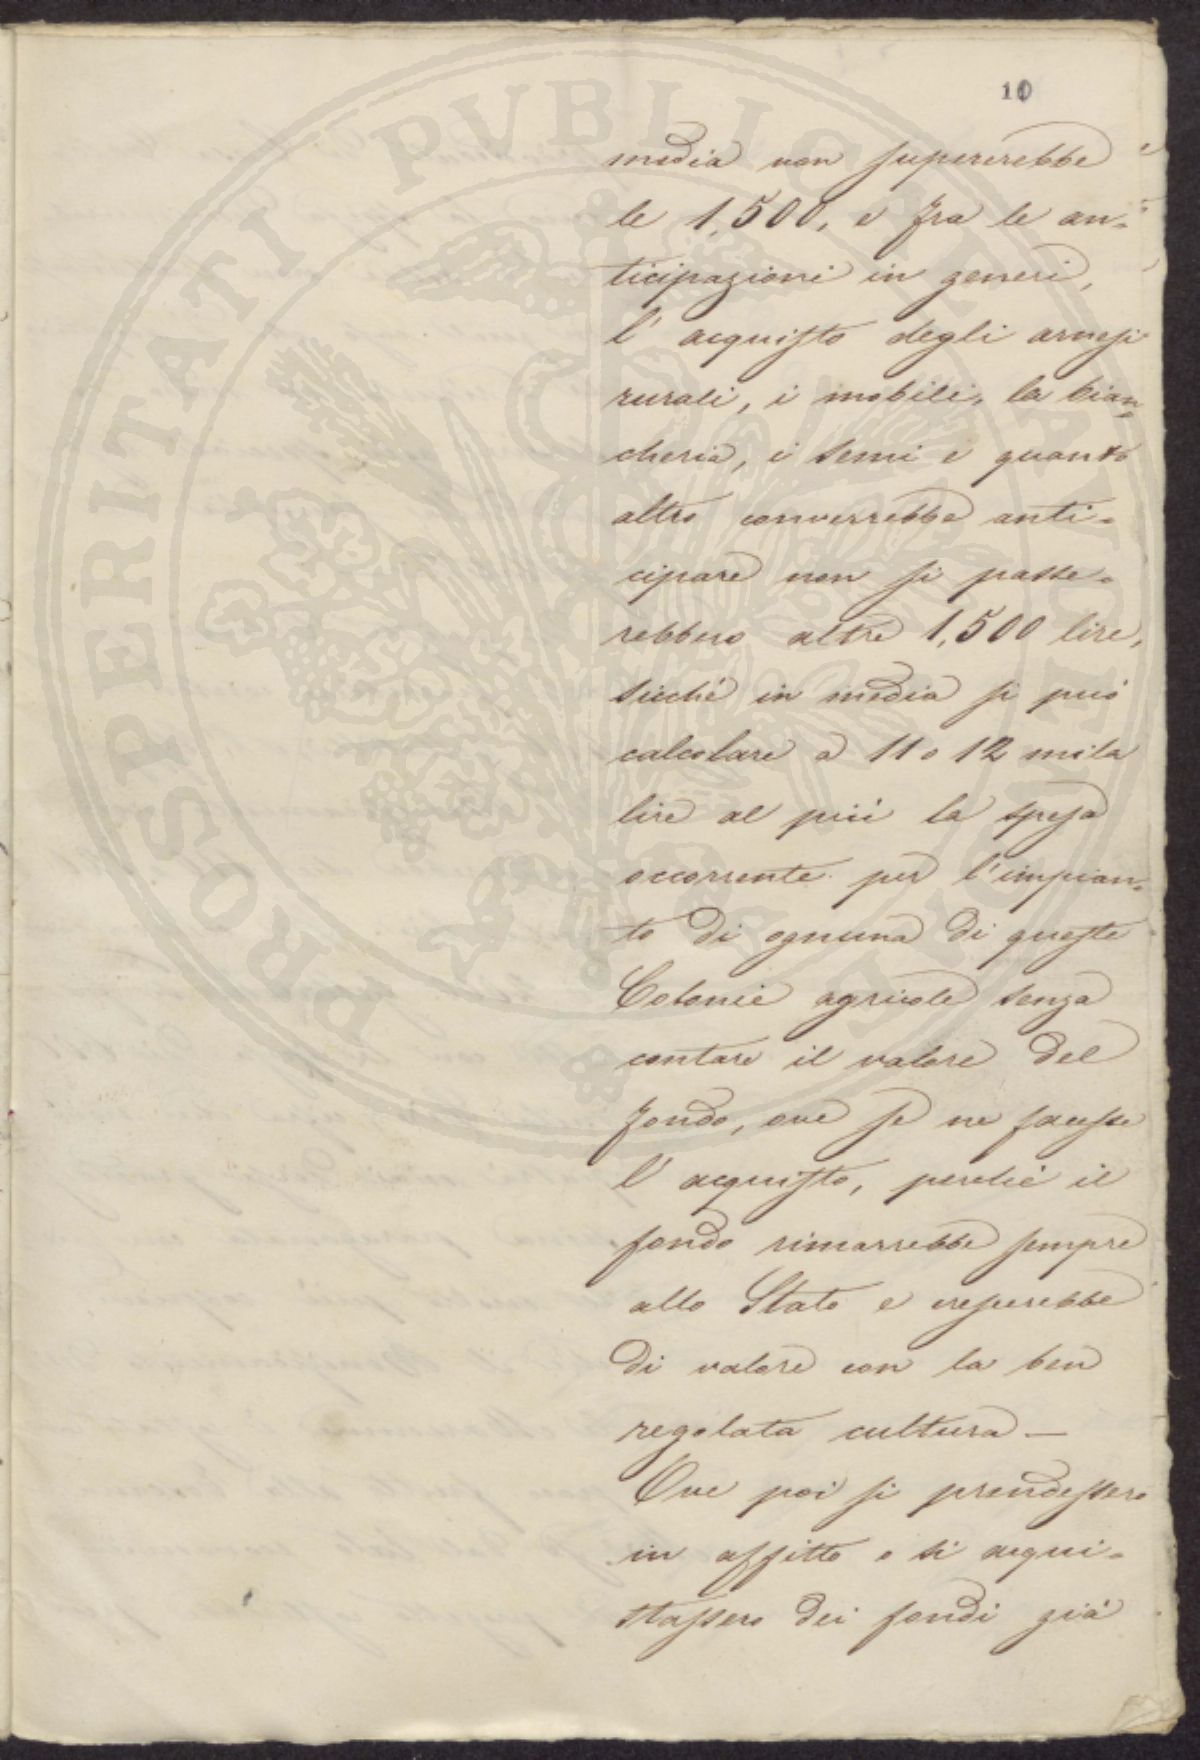 10
PROSPERITATI PVBLICAE AVGENDAE
media non supererebbe
le 1,500, e fra le an-
ticipazioni in generi,
l'acquisto degli arnesi
rurali, i mobili, la bian-
cheria, i semi e quanto
altro converrebbe anti-
cipare non si passe-
rebbero altre 1,500 lire,
sicché in media si può
calcolare a 11 o 12 mila
lire al più la spesa
occorrente per l'impian-
to di ognuna di queste
Colonie agricole senza
contare il valore del
fondo, ove se ne facesse
l'acquisto, perché il
fondo rimarrebbe sempre
allo Stato e crescerebbe
di valore con la ben
regolata cultura —
Ove poi si prendessero
in affitto o si acqui-
stassero dei fondi già